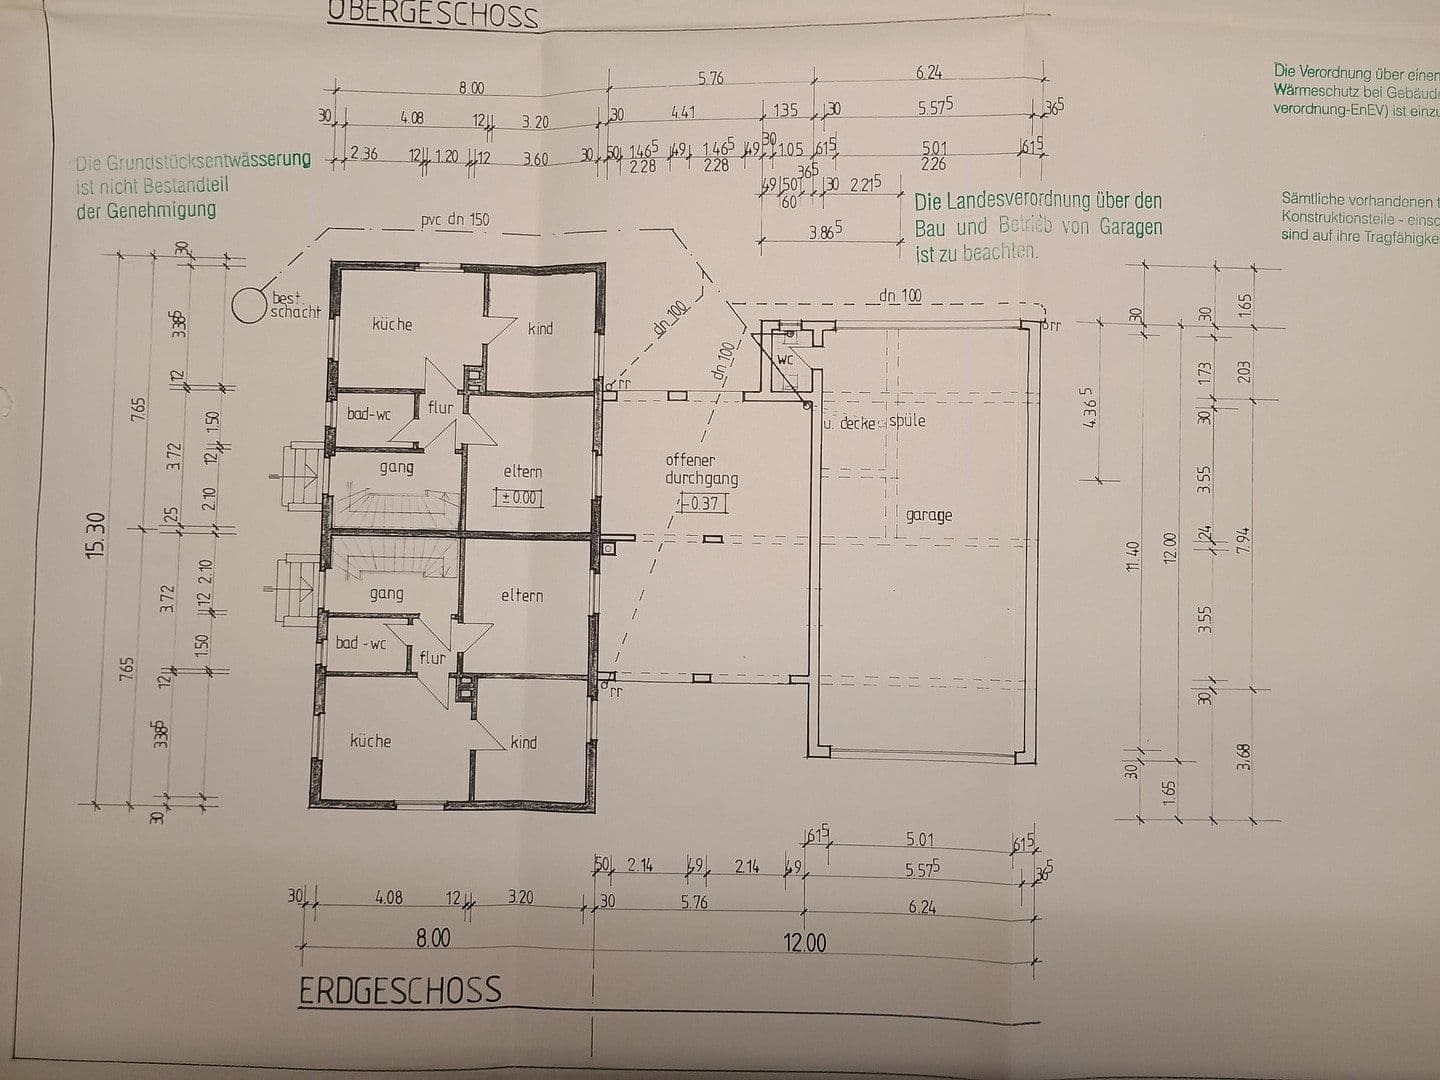 OBERGESCHOSS
8.00
5.76
6.24
30
4.08
12
3.20
30
4.41
1.35
30
5.57⁵
36⁵
2.36
12
1.20
12
3.60
30
50
1.46⁵
49
1.46⁵
49
30
1.05
61⁵
5.01
61⁵
2.28
2.28
2.26
36⁵
49
50
30
2.21⁵
60
3.86⁵
Die Grundstücksentwässerung
ist nicht Bestandteil
der Genehmigung
Die Landesverordnung über den
Bau und Betrieb von Garagen
ist zu beachten.
Die Verordnung über einen
Wärmeschutz bei Gebäud
verordnung-EnEV) ist einzu
Sämtliche vorhandenen t
Konstruktionsteile - einsc
sind auf ihre Tragfähigke
pvc dn 150
best.
schacht
dn 100
dn 100
dn 100
rr
rr
rr
küche
kind
wc
bad-wc
flur
u. decke
spüle
gang
eltern
± 0.00
offener
durchgang
-0.37
garage
gang
eltern
bad-wc
flur
küche
kind
30
3.38⁵
12
3.72
25
3.72
12
3.38⁵
30
7.65
7.65
15.30
1.50
12
2.10
2.10
12
1.50
4.36⁵
30
11.40
30
12.00
1.65
30
1.73
30
3.55
24
3.55
30
1.65
2.03
7.94
3.68
61⁵
5.01
61⁵
50
2.14
49
2.14
49
5.57⁵
36⁵
30
4.08
12
3.20
30
5.76
6.24
8.00
12.00
ERDGESCHOSS